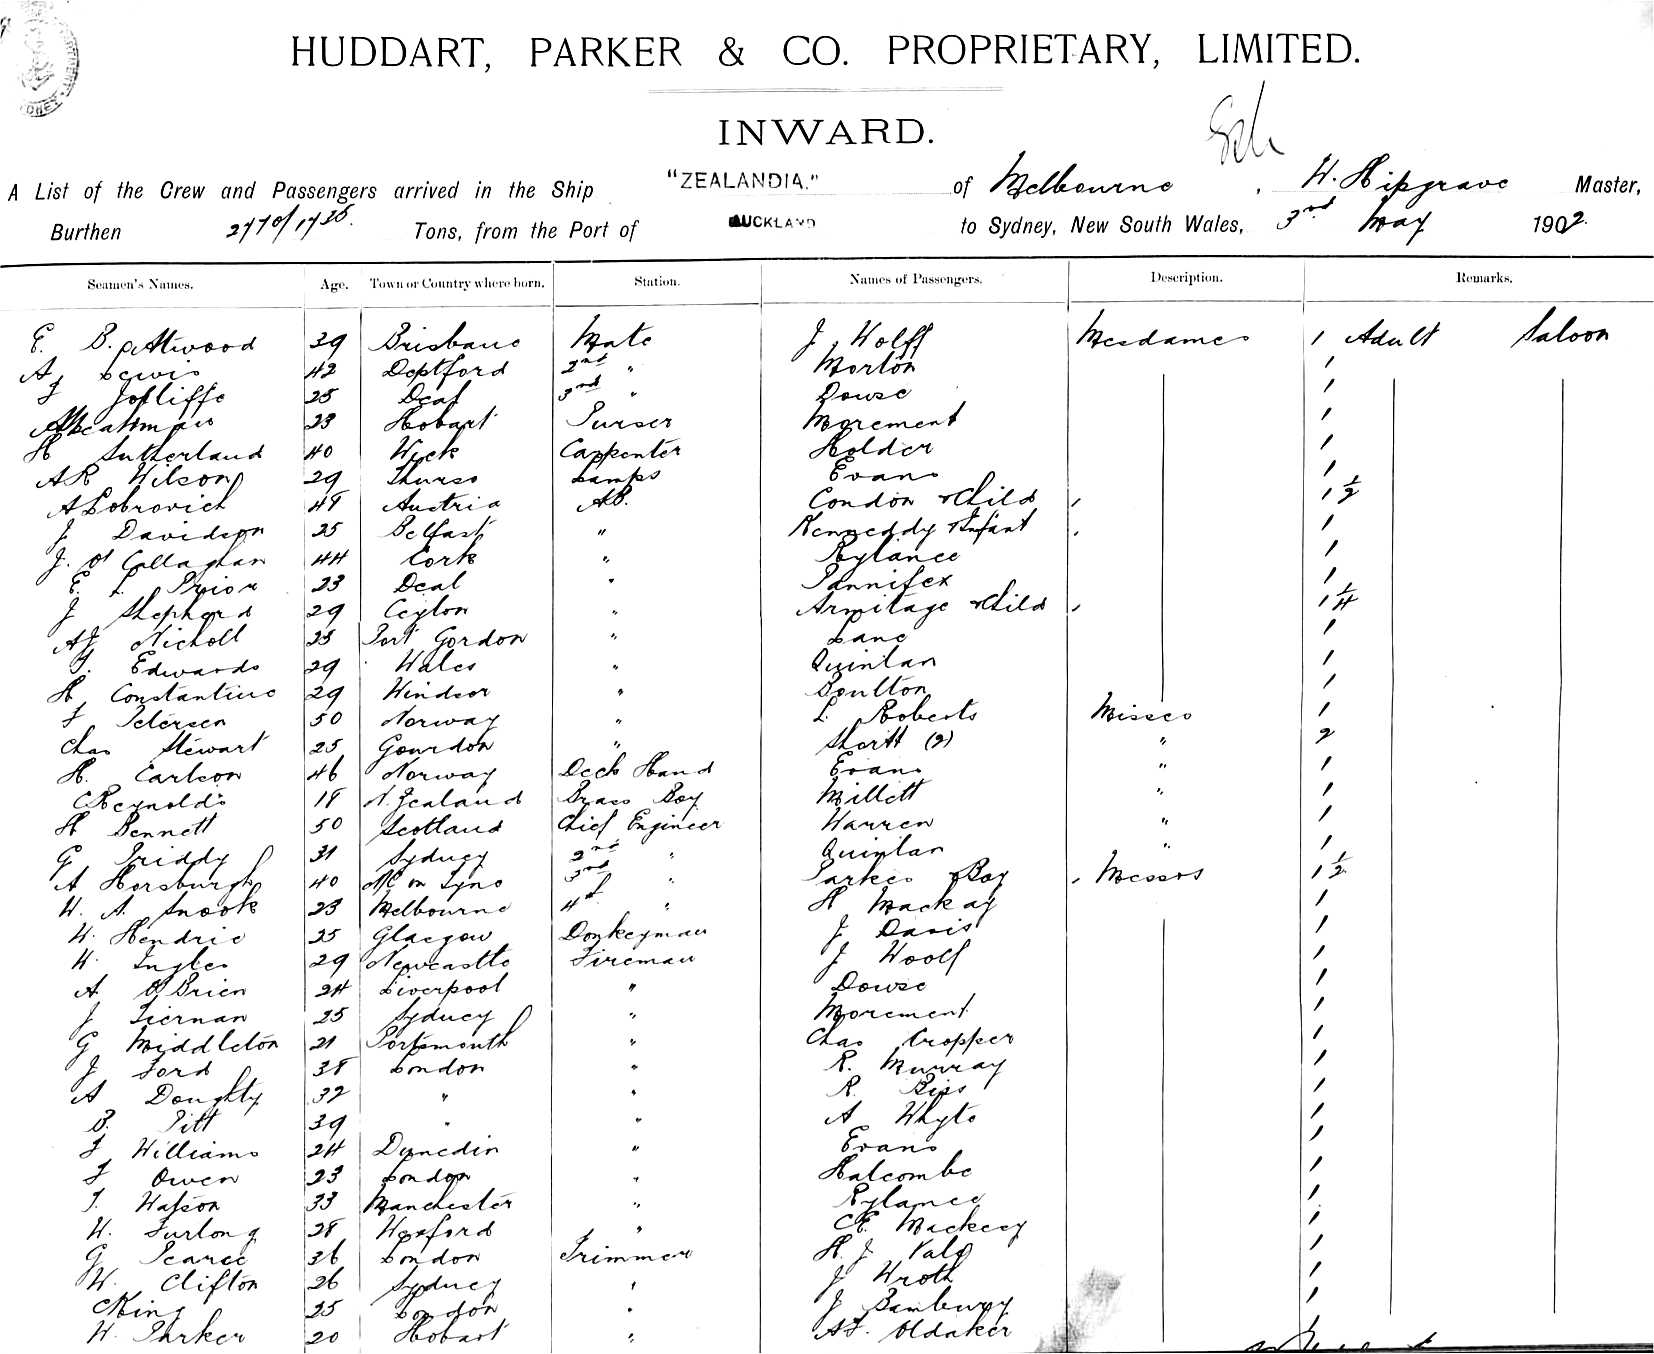 HUDDART, PARKER & CO. PROPRIETARY, LIMITED.
INWARD.
A List of the Crew and Passengers arrived in the Ship "ZEALANDIA." of Melbourne, W. Hipgrave Master,
Burthen 2770/1726. Tons, from the Port of AUCKLAND to Sydney, New South Wales, 3rd May 1902.
Seamen's Names. Age. Town or Country where born. Station. Names of Passengers. Description. Remarks.
E. B. Attwood 39 Brisbane Mate J Wolff Mesdames 1 Adult Saloon
A, Lewis 42 Deptford 2nd " Morton 1
J Jolliffe 25 Deal 3rd " Dowse 1
23 Hobart Purser Morement 1
H Sutherland 40 Wick Carpenter Holder 1
AR Wilson 29 Thurso Lamps Evans 1
48 Austria AB. Condon & Child , 1 1/2
J Davidson 25 Belfast " Kenneddy & Infant , 1
J. O'Callaghan 44 Cork " Rylance 1
E. L. Prior 23 Deal " Pannifex 1
J Shepherd 29 Ceylon " Armitage & Child , 1 1/4
AJ Nicholl 25 Port Gordon " Lane 1
Edwards 29 Wales " Quinlan 1
H, Constantine 29 Windsor " Boulton 1
J Petersen 50 Norway " L. Roberts Misses 1
Chas Stewart 25 Gourdon " Shortt (2) " 2
H. Carlson 46 Norway Deck Hand Evans " 1
C Reynolds 18 N. Zealand Brass Boy Millett " 1
H Bennett 50 Scotland Chief Engineer Warren " 1
G Priddy 31 Sydney 2nd " Quinlan " 1
A Horsburgh 40 N/C on Tyne 3rd " Parkes & Boy , Messrs 1 1/2
W. A. Snook 23 Melbourne 4th " H Mackay 1
W. Hendrie 25 Glasgow Donkeyman J Davis 1
W. Ingles 29 Newcastle Fireman J Woolf 1
A O'Brien 24 Liverpool " Dowse 1
J Tiernan 25 Sydney " Morement 1
G Middleton 21 Portsmouth " Chas Cropper 1
J Ford 38 London " R. Murray 1
A Doughty 32 " " R. 1
B. Pitt 39 " " A Whyte 1
J Williams 24 Dunedin " Evans 1
J Owen 23 London " Halcombe 1
T. Watson 33 Manchester " Rylance 1
W. Furlong 28 Wexford " CE. 1
G Pearce 36 London Trimmer H. J Vale 1
W. Clifton 26 Sydney " J Wroth 1
C King 25 London " J Bambury 1
W. Parker 20 Hobart " AF. Oldaker 1